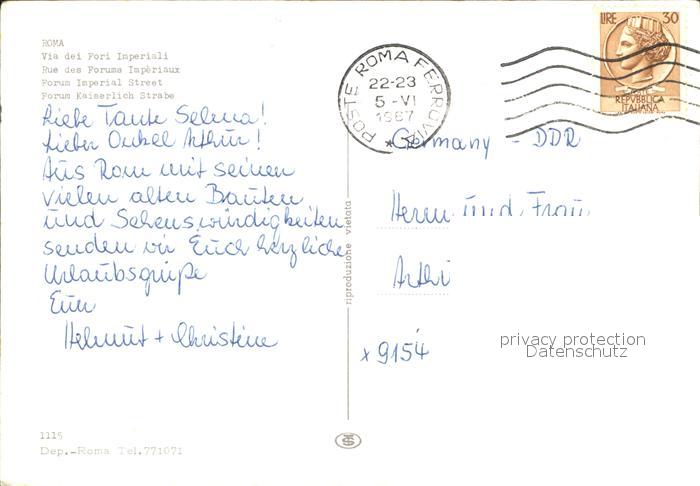 ROMA
Via dei Fori Imperiali
Rue des Forums Impèriaux
Forum Imperial Street
Forum Kaiserlich Strabe
Liebe Tante Selma!
Lieber Onkel Arthur!
Aus Rom mit seinen
vielen alten Bauten
und Sehenswürdigkeiten
senden wir Euch herzliche
Urlaubsgrüße
Eure
Helmut + Christine
1115
Dep.-Roma Tel.771071
riproduzione vietata
POSTE ROMA FERROVIA
22-23
5-VI
1967
LIRE 30
REPVBBLICA
ITALIANA
Germany - DDR
Herrn und Frau
x 9154
privacy protection
Datenschutz